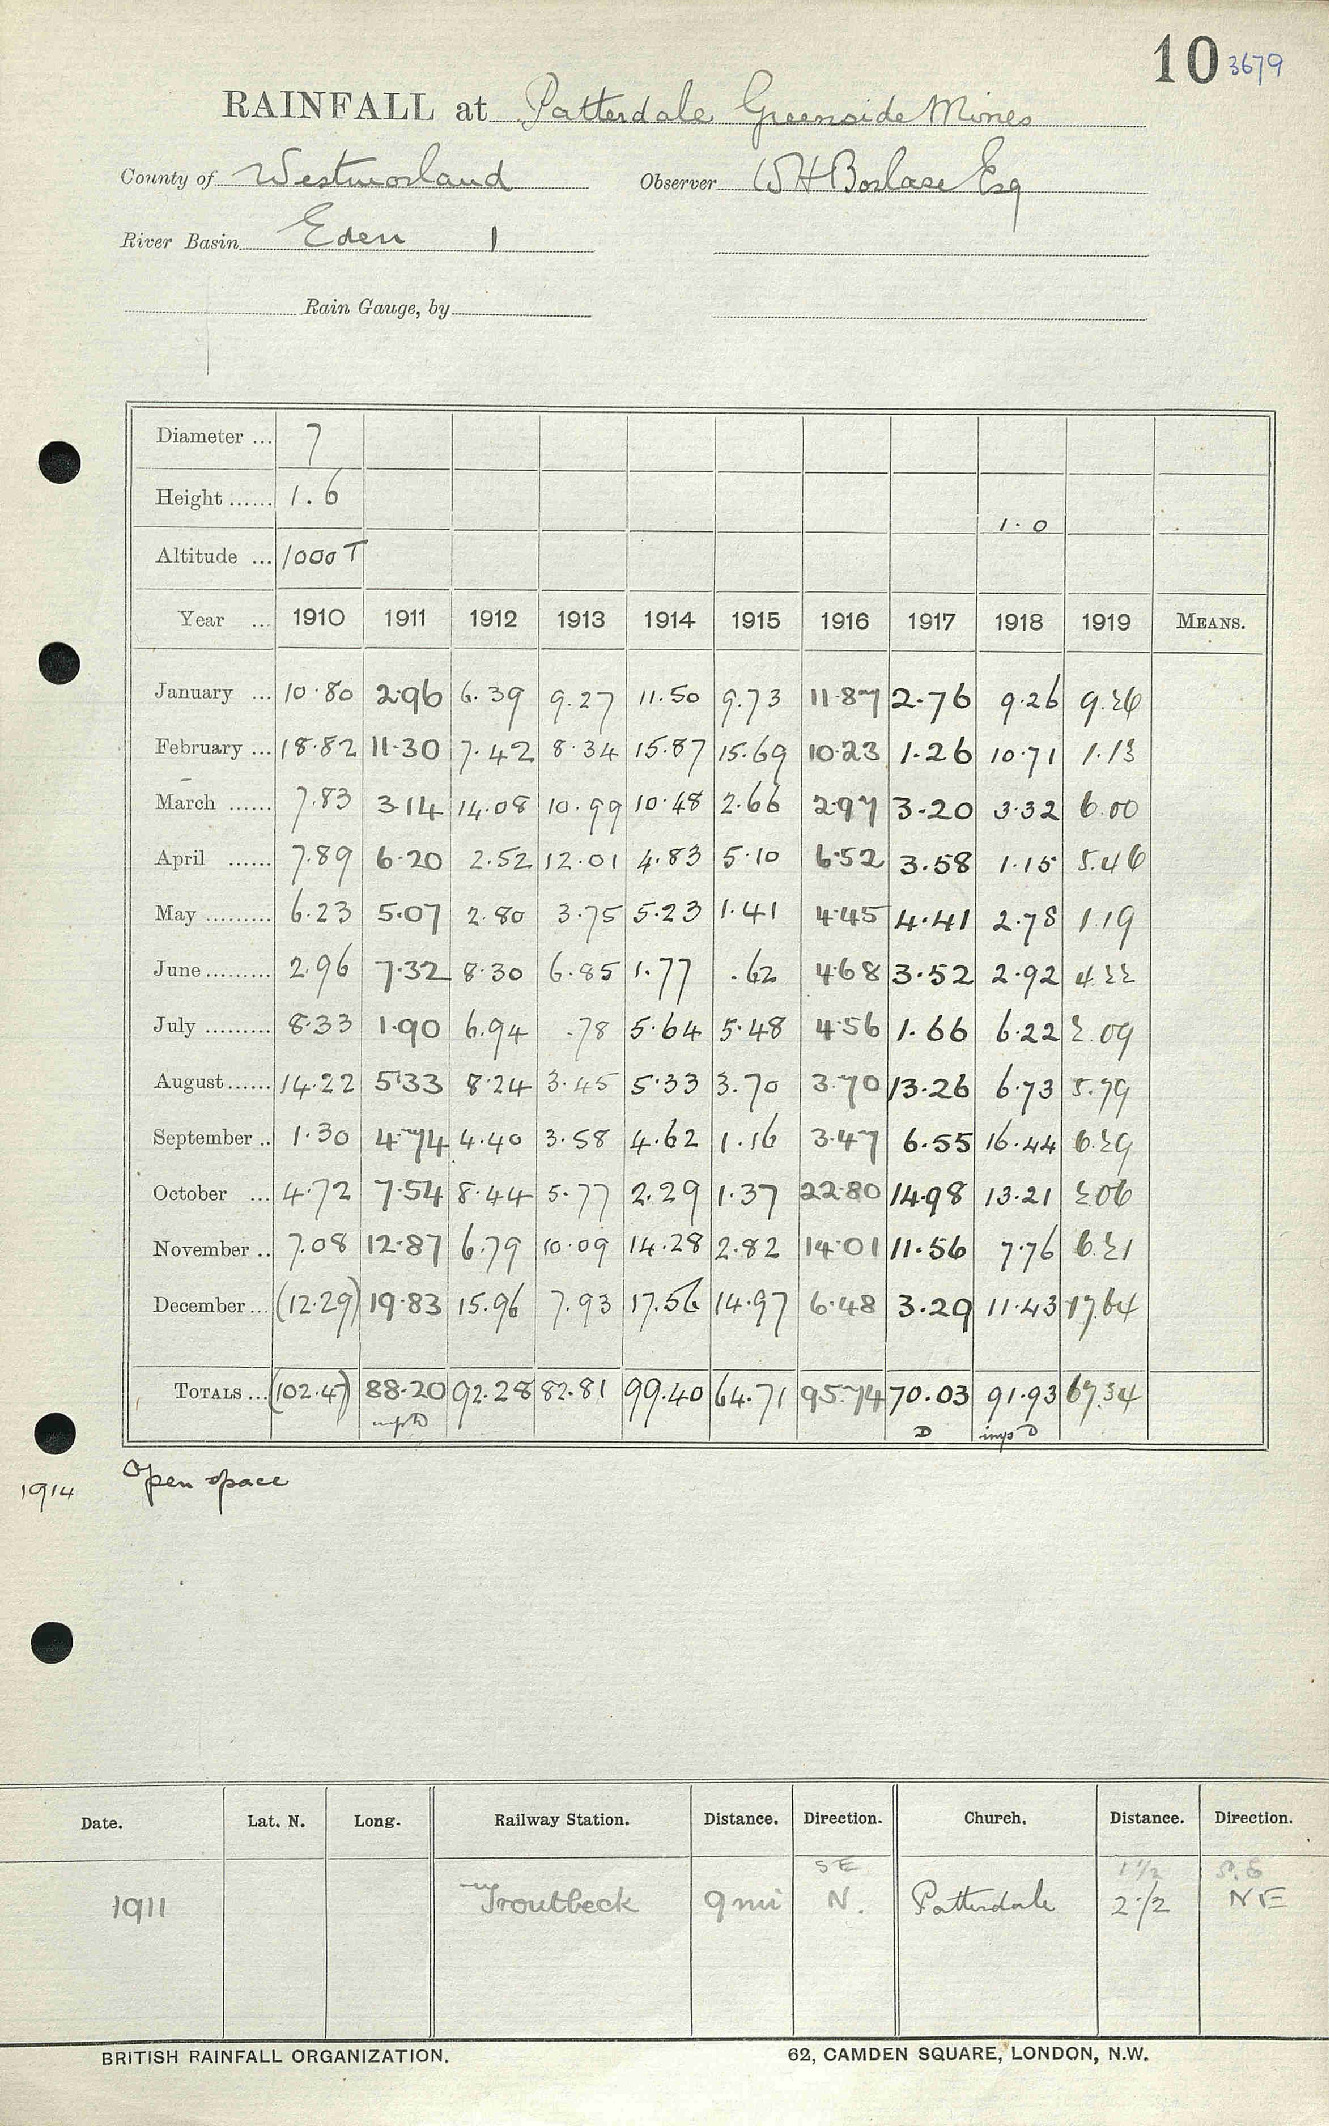 10 3679
RAINFALL at Patterdale Greenside Mines
County of Westmorland Observer W H Borlase Esq
River Basin Eden 1
Rain Gauge, by
Diameter ... 7
Height ...... 1.6 1.0
Altitude ... 1000 T
Year ... 1910 1911 1912 1913 1914 1915 1916 1917 1918 1919 MEANS.
January ... 10.80 2.96 6.39 9.27 11.50 9.73 11.87 2.76 9.26 9.26
February ... 18.82 11.30 7.42 8.34 15.87 15.69 10.23 1.26 10.71 1.13
March ...... 7.83 3.14 14.08 10.99 10.48 2.66 2.97 3.20 3.32 6.00
April ...... 7.89 6.20 2.52 12.01 4.83 5.10 6.52 3.58 1.15 5.46
May ......... 6.23 5.07 2.80 3.75 5.23 1.41 4.45 4.41 2.78 1.19
June ......... 2.96 7.32 8.30 6.85 1.77 .62 4.68 3.52 2.92 4.22
July ......... 8.33 1.90 6.94 .78 5.64 5.48 4.56 1.66 6.22 2.09
August ...... 14.22 5.33 8.24 3.45 5.33 3.70 3.70 13.26 6.73 5.79
September .. 1.30 4.74 4.40 3.58 4.62 1.16 3.47 6.55 16.44 6.29
October ... 4.72 7.54 8.44 5.77 2.29 1.37 22.80 14.98 13.21 2.06
November .. 7.08 12.87 6.79 10.09 14.28 2.82 14.01 11.56 7.76 6.21
December ... (12.29) 19.83 15.96 7.93 17.56 14.97 6.48 3.29 11.43 17.64
TOTALS ... (102.47) 88.20 92.28 82.81 99.40 64.71 95.74 70.03 91.93 67.34
D imps D
1914 Open space
Date. Lat. N. Long. Railway Station. Distance. Direction. Church. Distance. Direction.
SE 1 1/2 S.E
1911 Troutbeck 9 mi N. Patterdale 2 1/2 NE
BRITISH RAINFALL ORGANIZATION. 62, CAMDEN SQUARE, LONDON, N.W.